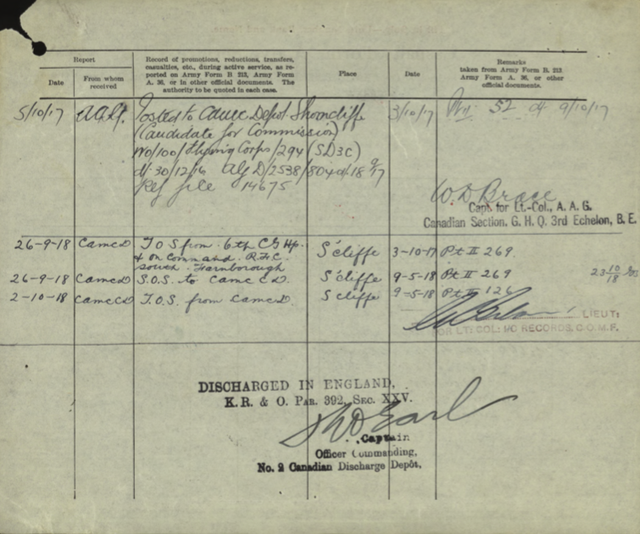 Report
Date
From whom received
Record of promotions, reductions, transfers, casualties, etc., during active service, as reported on Army Form B 213, Army Form A. 36, or in other official documents. The authority to be quoted in each case.
Place
Date
Remarks
taken from Army Form B. 213, Army Form A. 36, or other official documents.
5/10/17 Posted to Depot Shorncliffe 3/10/17 52 9/10/17
(Candidate for Commission)
WO/100/Flying Corps/294 (SD3C)
d/30/12/16 D/2538/
file 14675
Capt. for Lt.-Col., A. A. G.
Canadian Section. G. H. Q. 3rd Echelon, B. E.
26-9-18 T.O.S from 6th S'cliffe 3-10-17 Pt II 269.
& on Command R.F.C.
Farnborough
26-9-18 S.O.S. to S'cliffe 9-5-18 Pt II 269
2-10-18 T.O.S. from S'cliffe 9-5-18 Pt II 126
LIEUT:
FOR LT: COL: I/C RECORDS, C.O.M.F.
DISCHARGED IN ENGLAND,
K. R. & O. PAR. 392, SEC. XXV.
Earl
Captain
Officer Commanding,
No. 2 Canadian Discharge Depôt.